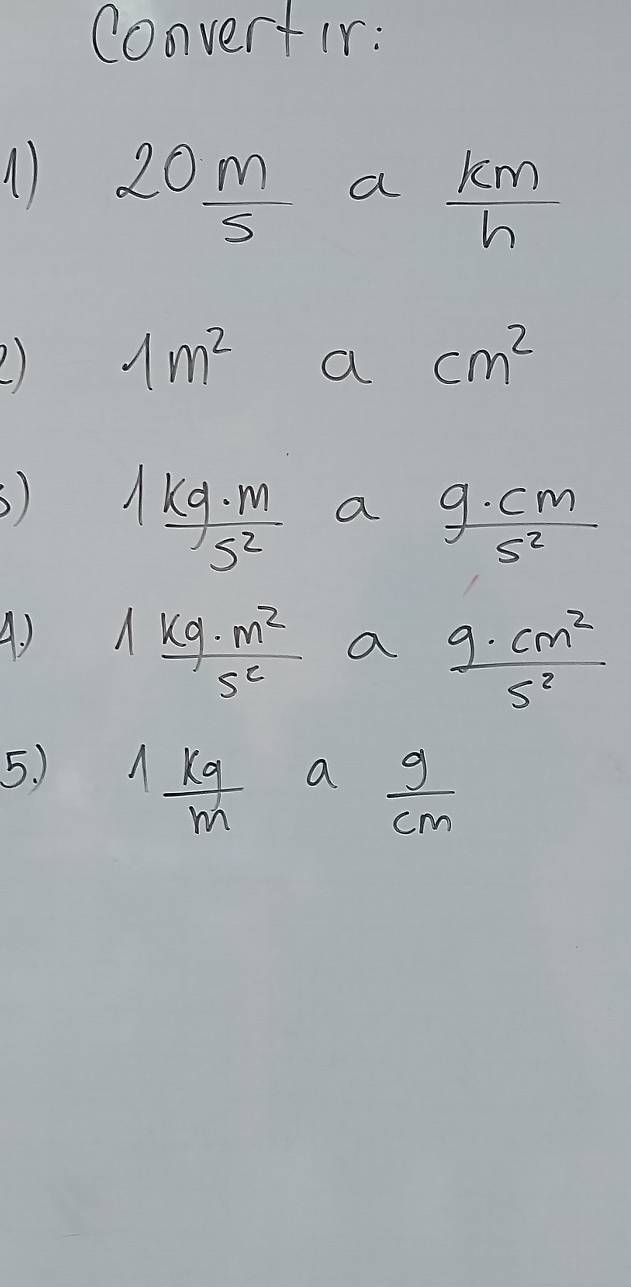 Convertir:
1) 20 m/s a km/h
2) 1m² a cm²
3) 1 kg·m/s² a g·cm/s²
4.) 1 kg·m²/s² a g·cm²/s²
5.) 1 kg/m a g/cm